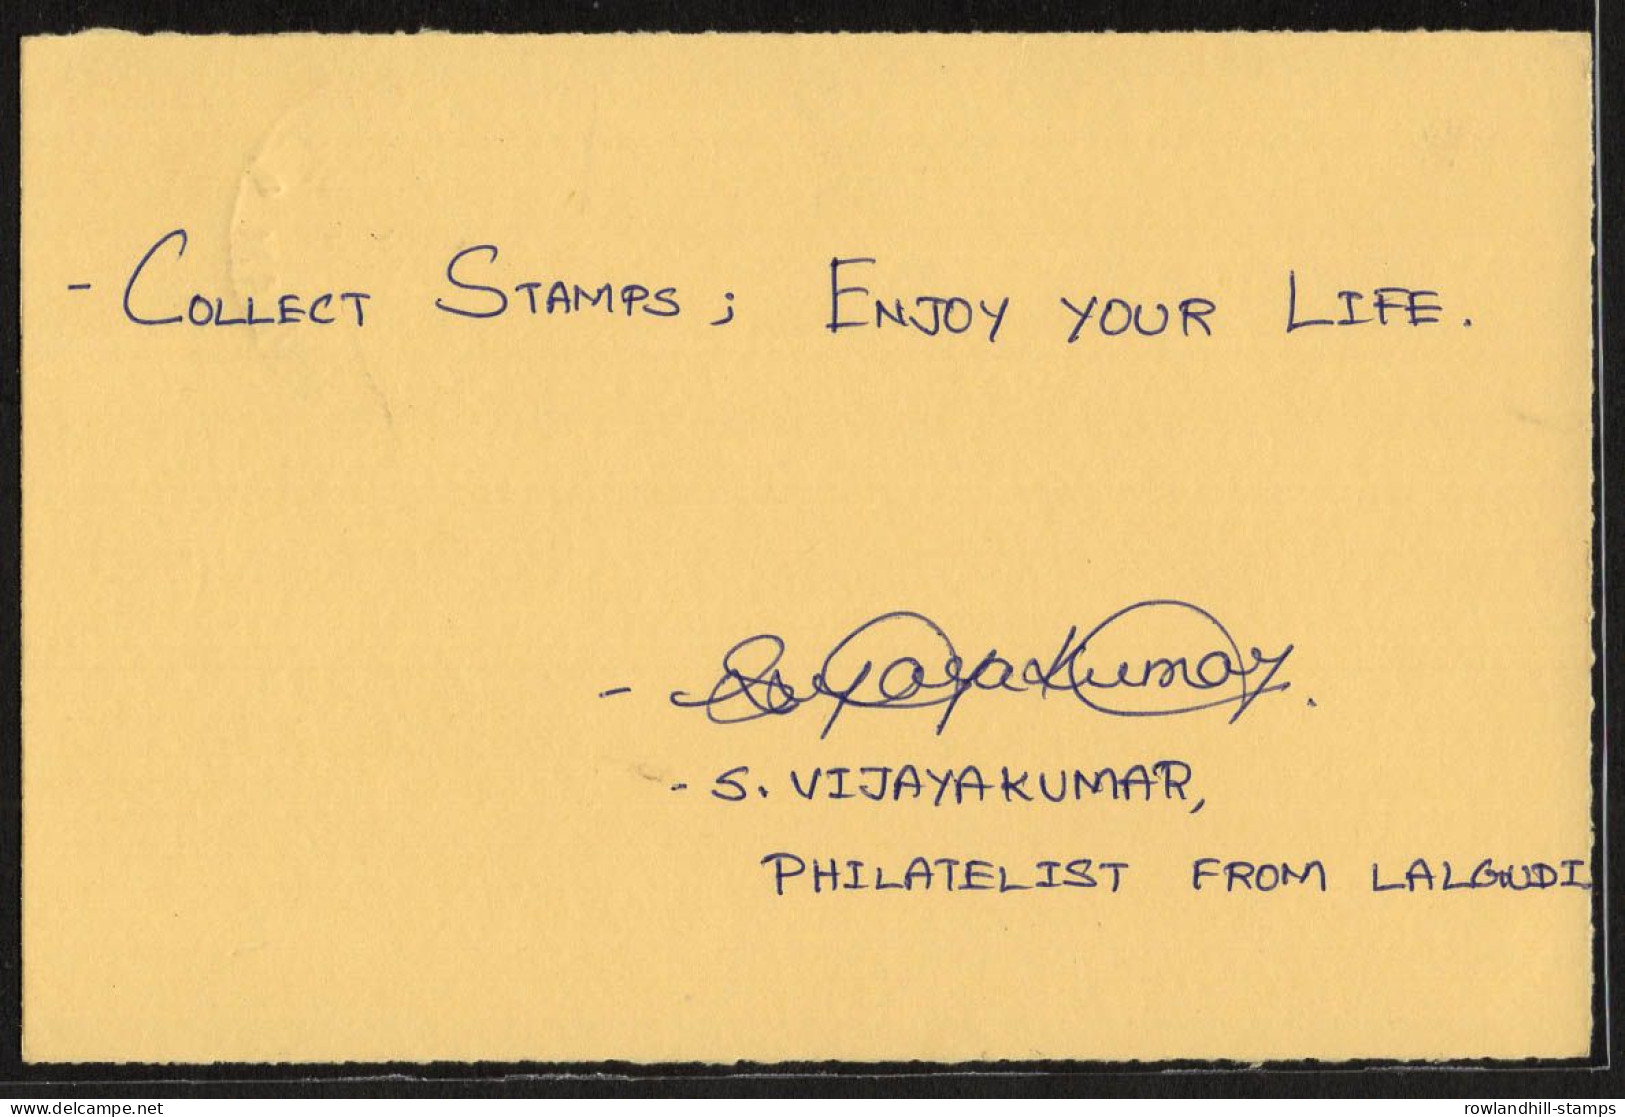 - COLLECT STAMPS; ENJOY YOUR LIFE.
- S. Vijayakumar.
- S. VIJAYAKUMAR,
PHILATELIST FROM LALGUDI
delcampe.net
rowlandhill-stamps